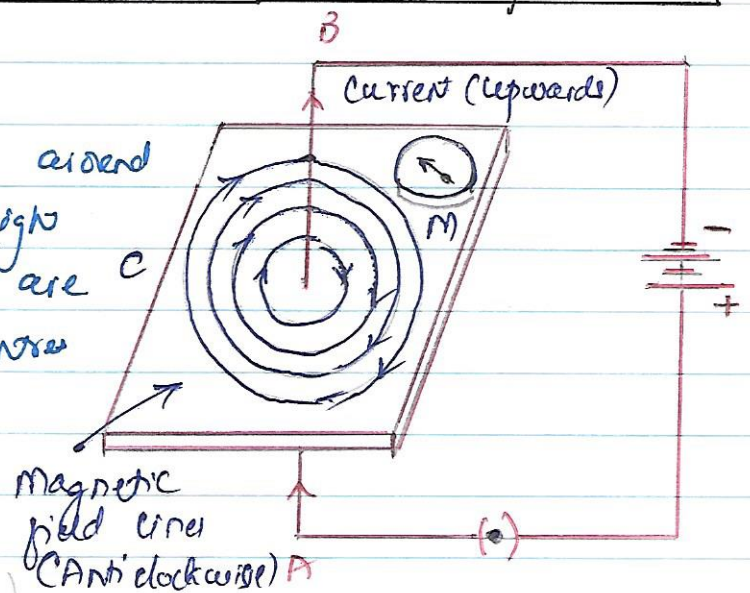 B
Current (upwards)
around
are
C
M
-
+
Magnetic
field lines
(Anticlockwise) A